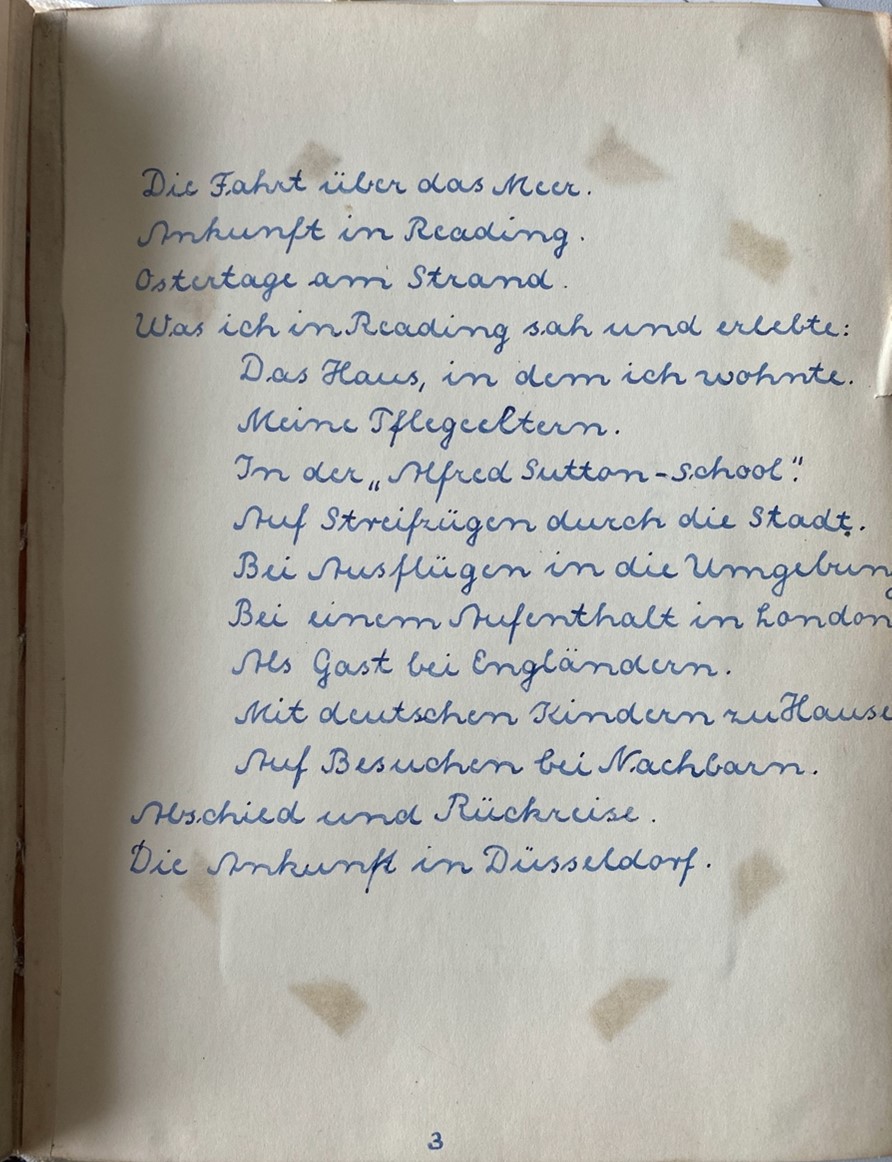 Die Fahrt über das Meer.
Ankunft in Reading.
Ostertage am Strand.
Was ich in Reading sah und erlebte:
Das Haus, in dem ich wohnte.
Meine Pflegeeltern.
In der „Alfred Sutton-School".
Auf Streifzügen durch die Stadt.
Bei Ausflügen in die Umgebung
Bei einem Aufenthalt in London
Als Gast bei Engländern.
Mit deutschen Kindern zu Hause
Auf Besuchen bei Nachbarn.
Abschied und Rückreise.
Die Ankunft in Düsseldorf.
3